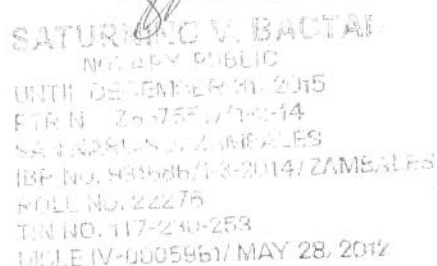 SATURNINO V. BACTAL
NOTARY PUBLIC
UNTIL DECEMBER 31, 2015
PTR N
ZAMBALES
IBP NO. 1-3-2014/ZAMBALES
ROLL NO. 22276
TIN NO. 117-230-253
MCLE IV-0005961/ MAY 28, 2012